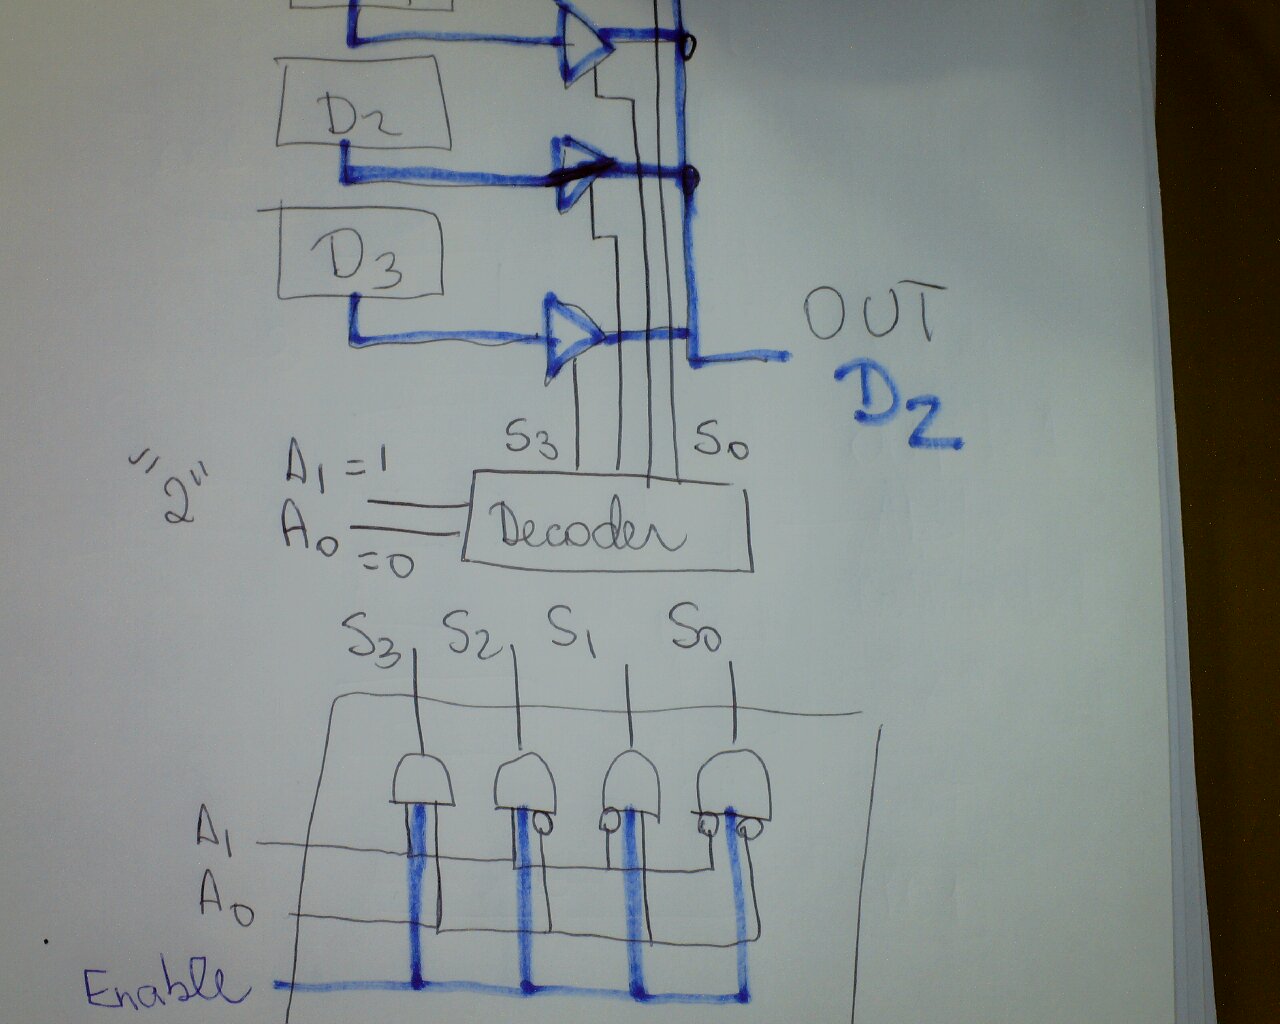 D2
D3
OUT
D2
S3 S0
"2"
A1 = 1
A0 = 0
Decoder
S3 S2 S1 S0
A1
A0
Enable